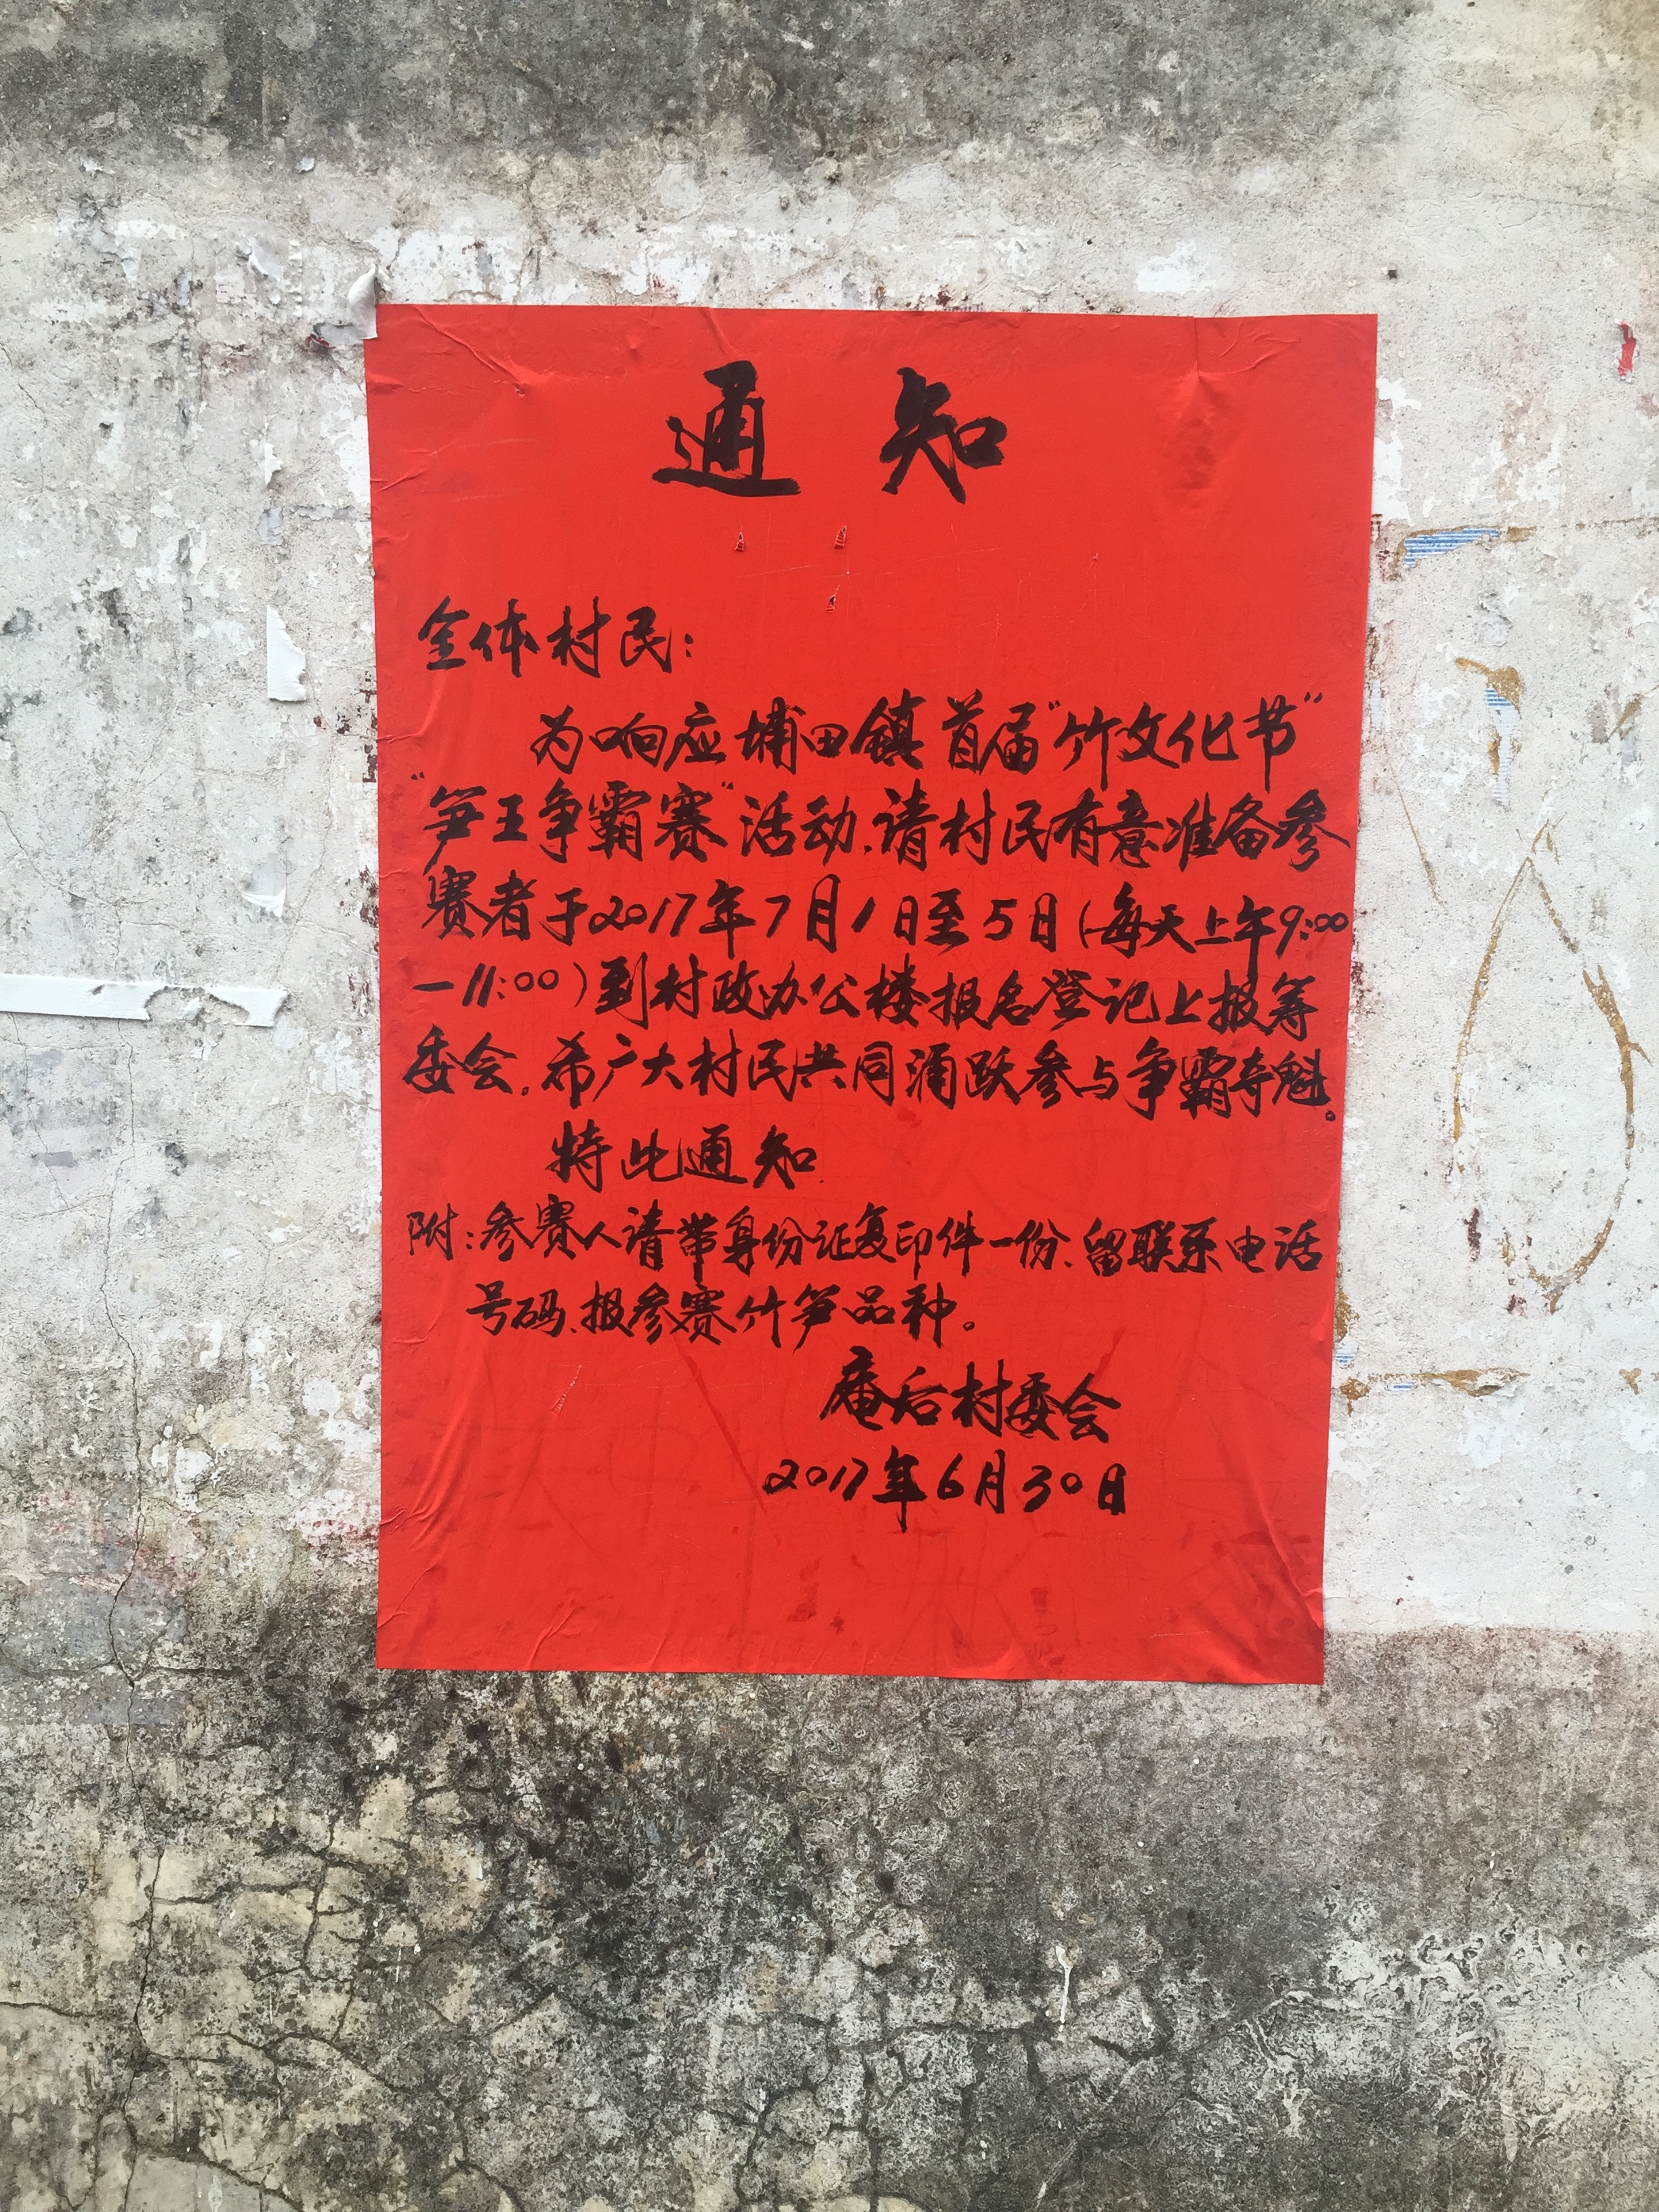 通知
全体村民：
为响应埔田镇首届“竹文化节”
“笋王争霸赛”活动，请村民有意准备参
赛者于2017年7月1日至5日（每天上午9:00
—11:00）到村政办公楼报名登记上报筹
委会，希广大村民共同涌跃参与争霸夺魁。
特此通知
附：参赛人请带身份证复印件一份、留联系电话
号码、报参赛竹笋品种。
庵后村委会
2017年6月30日